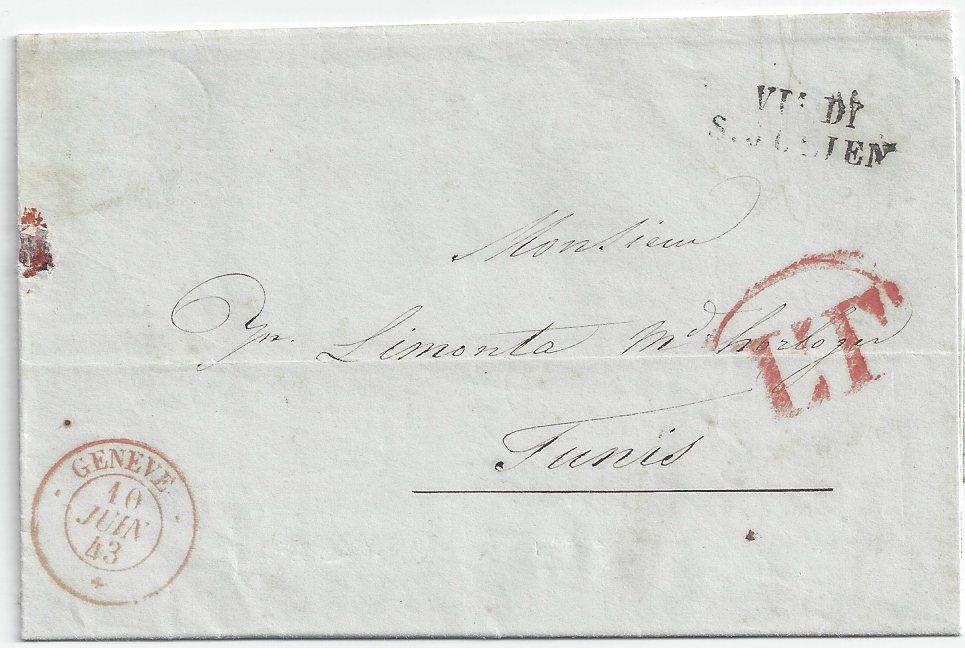 VIA DI
S. JULIEN
Monsieur
Limonta Md. horloger
LF
Tunis
GENEVE
10
JUIN
43